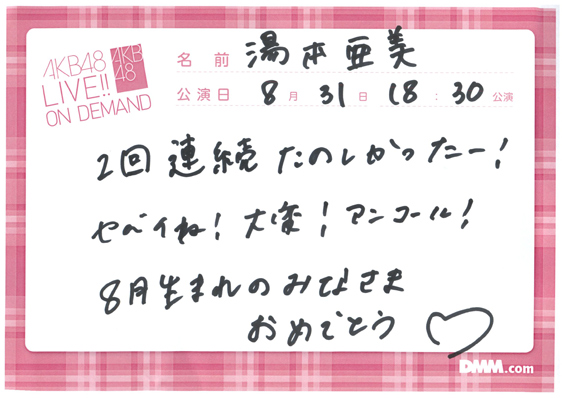 AKB48
LIVE!!
ON DEMAND
AKB
48
名前 湯本亜美
公演日 8月31日 18:30公演
2回連続たのしかったー!
ヤベイね!大変!アンコール!
8月生まれのみなさま
おめでとう ♡
DMM.com